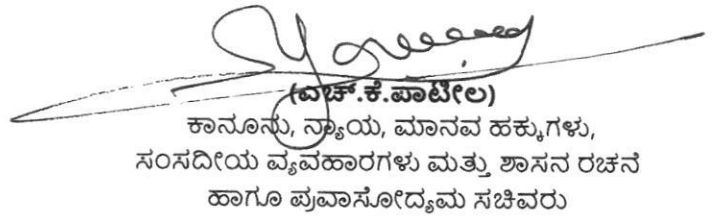 (ಎಚ್.ಕೆ.ಪಾಟೀಲ)
ಕಾನೂನು, ನ್ಯಾಯ, ಮಾನವ ಹಕ್ಕುಗಳು,
ಸಂಸದೀಯ ವ್ಯವಹಾರಗಳು ಮತ್ತು ಶಾಸನ ರಚನೆ
ಹಾಗೂ ಪ್ರವಾಸೋದ್ಯಮ ಸಚಿವರು